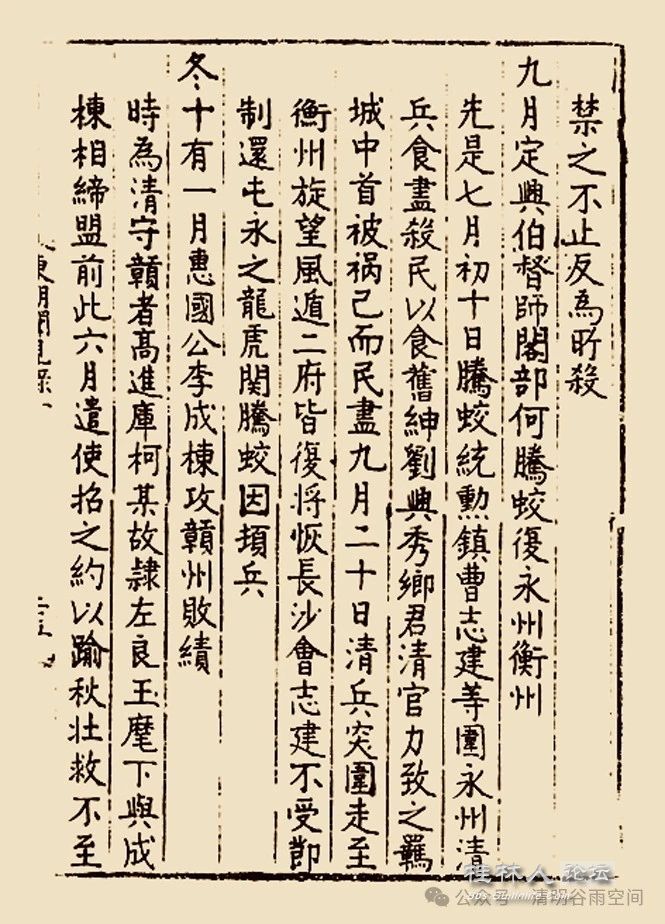 禁之不止反為所殺
九月定興伯督師閣部何騰蛟復永州衡州
先是七月初十日騰蛟統勲鎮曹志建等圍永州清
兵食盡殺民以食舊紳劉興秀鄉君清官力致之羈
城中首被禍已而民盡九月二十日清兵突圍走至
衡州旋望風遁二府皆復将恢長沙會志建不受節
制還屯永之龍虎関騰蛟因頓兵
冬十有一月惠國公李成棟攻贛州敗績
時為清守贛者髙進庫柯某故隷左良玉麾下與成
棟相締盟前此六月遣使招之約以踰秋壮救不至
東明聞見録
桂林人论坛
公众号·清明谷雨空间